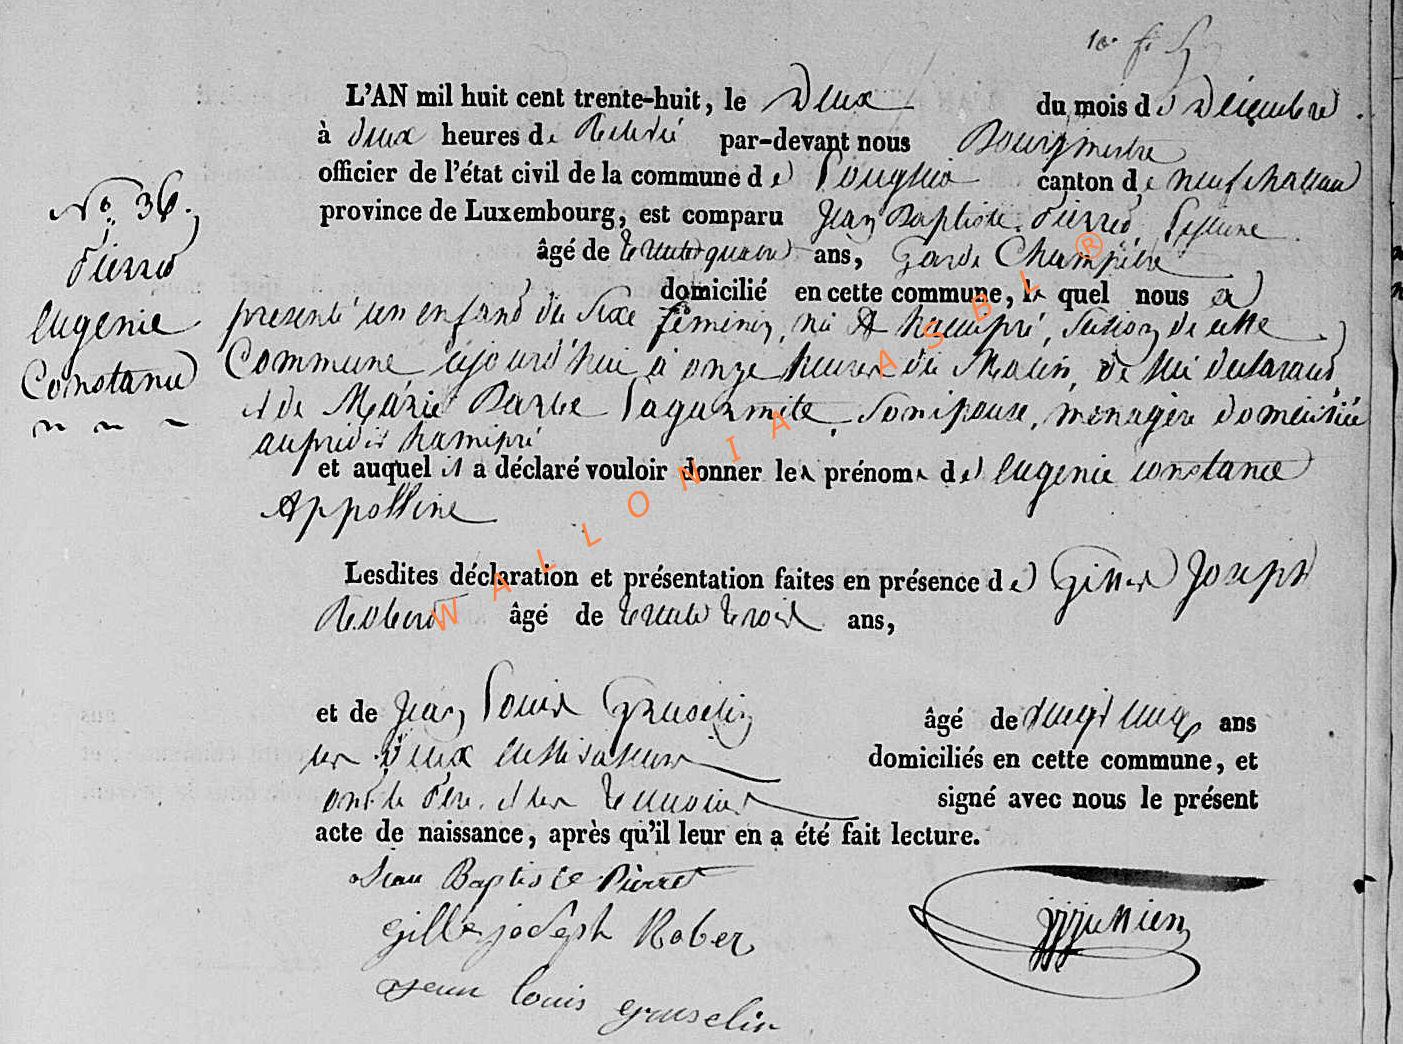 L'AN mil huit cent trente-huit, le Deux du mois de Décembre
à deux heures de Relevé par-devant nous Bourgmestre
officier de l'état civil de la commune de Longlier canton de neufchateau
province de Luxembourg, est comparu Jean Baptiste Pierret
âgé de trente quatre ans, Garde Champêtre
domicilié en cette commune, le quel nous a
présenté un enfant du Sexe féminin, né à hamipré, Section de cette
Commune aujourd'hui à onze heures du Matin, de lui déclarant
et de Marie Barbe Laguermite, Son épouse, ménagère domiciliée
au prédit hamipré
et auquel il a déclaré vouloir donner les prénoms de Eugenie Constance
Appolline
Lesdites déclaration et présentation faites en présence de Gilles Joseph
Robert âgé de trente trois ans,
et de Jean Louis Gruselin âgé de vingt cinq ans
les Deux cultivateurs domiciliés en cette commune, et
ont le Père et les témoins signé avec nous le présent
acte de naissance, après qu'il leur en a été fait lecture.
Jean Baptiste Pierret
gille joseph Rober
jean louis gruselin
No. 36.
Pierret
Eugenie
Constance
WALLONIA ASBL ®